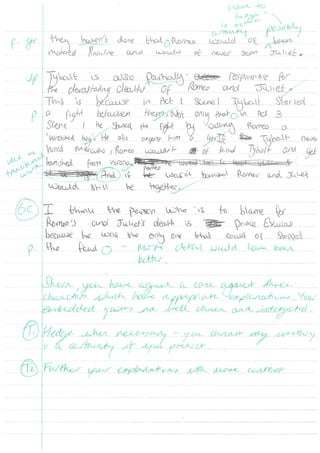 have to
hedge
is never
certainty possibly
p. gr they haven't done that, Romeo would of been
Rosaline and would of never seen Juliet.
up Tybalt is also partially responsible for
the devastating deaths of Romeo and Juliet.
This is because in Act 1 Scene 1 Tyball started
p. a fight between them. Not only that, in Act 3
Scene 1 he started the fight by calling Romeo a
"wretched boy". He also
killed Mercutio, Romeo wouldn't of killed Tybolt and got
banished from verona
And if Romeo wasn't banished Romeo and Juliet
would still be together.
I think the person who is to blame for
Romeo's and Juliet's death is Prince Escalus
because he was the only one that could of stopped
p. the feud - More detail would have been
better.
you have argued a case against three
characters which have appropriate explanations. Your
embedded quotes are well chosen and integrated.
T1. Hedge when necessary - you cannot say something
is a certainty if you predict.
T2 Further your explanations with more context